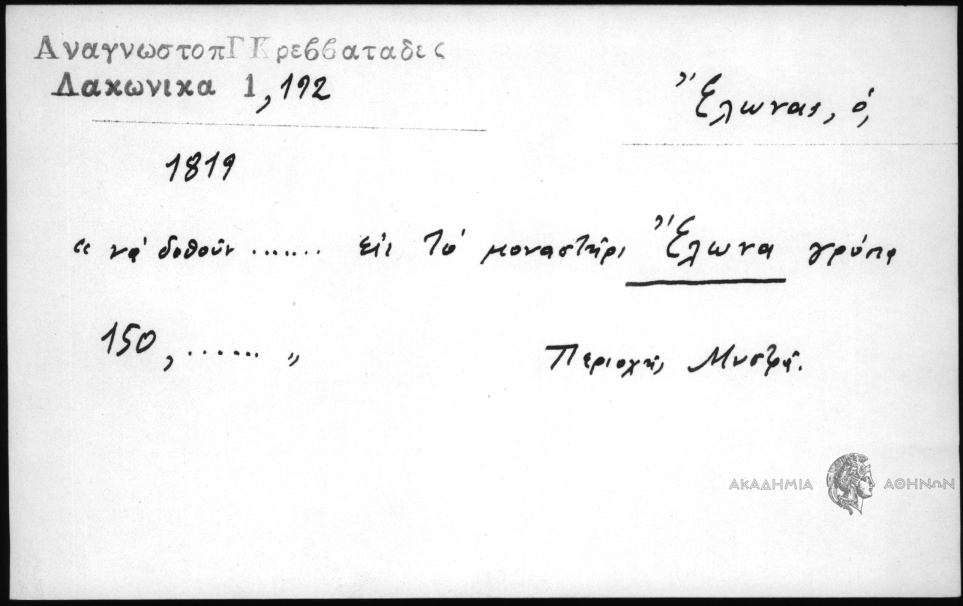 ΑναγνωστοπΓΚρεββαταδες
Λακωνικα 1,192
Ἕλωνας, ὁ,
1819
« νά δοθοῦν ....... εἰς τό μοναστῆρι Ἕλωνα γρόσια
150, ...... »
Περιοχή, Μυστρᾶ.
ΑΚΑΔΗΜΙΑ ΑΘΗΝΩΝ